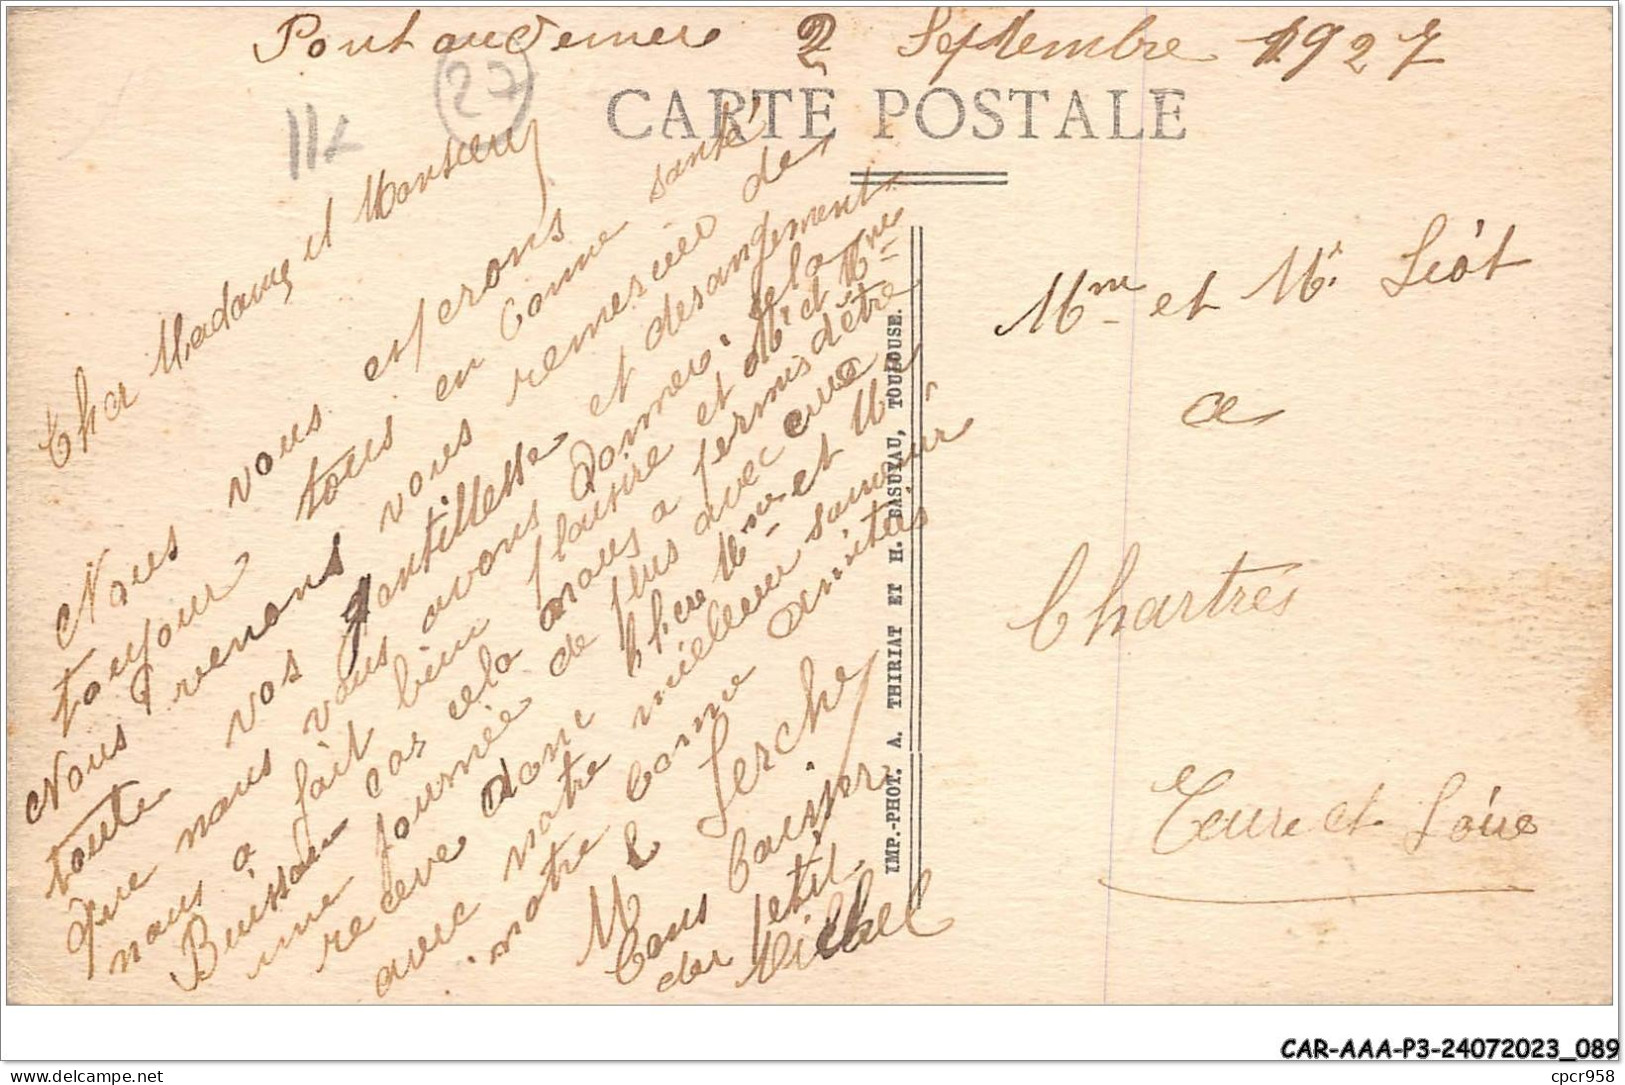 Pontaudemere 2 Septembre 1927
27
CARTE POSTALE
Cher Madame et Monsieur
Nous vous esperons
toujour tous en bonne santé
Nous venons vous remescier de
toute vos gentillesse et desangement
que nous vous avons donner. de la
nous a fait bien plaisire et Mr et Mme
Buisson car cela nous a permis d'être
une journée de plus avec eux
receve donc chere Mme et Mr
avec notre meilleur souvenir
notre bonne amitais
M L Lerche
bons baiser
der petit
Michel
IMP.-PHOT. A. THIRIAT ET H. BASUYAU, TOULOUSE.
Mme et Mr Liot
a
Chartres
Eure et Loire
CAR-AAA-P3-24072023_089
delcampe.net
cpcr958